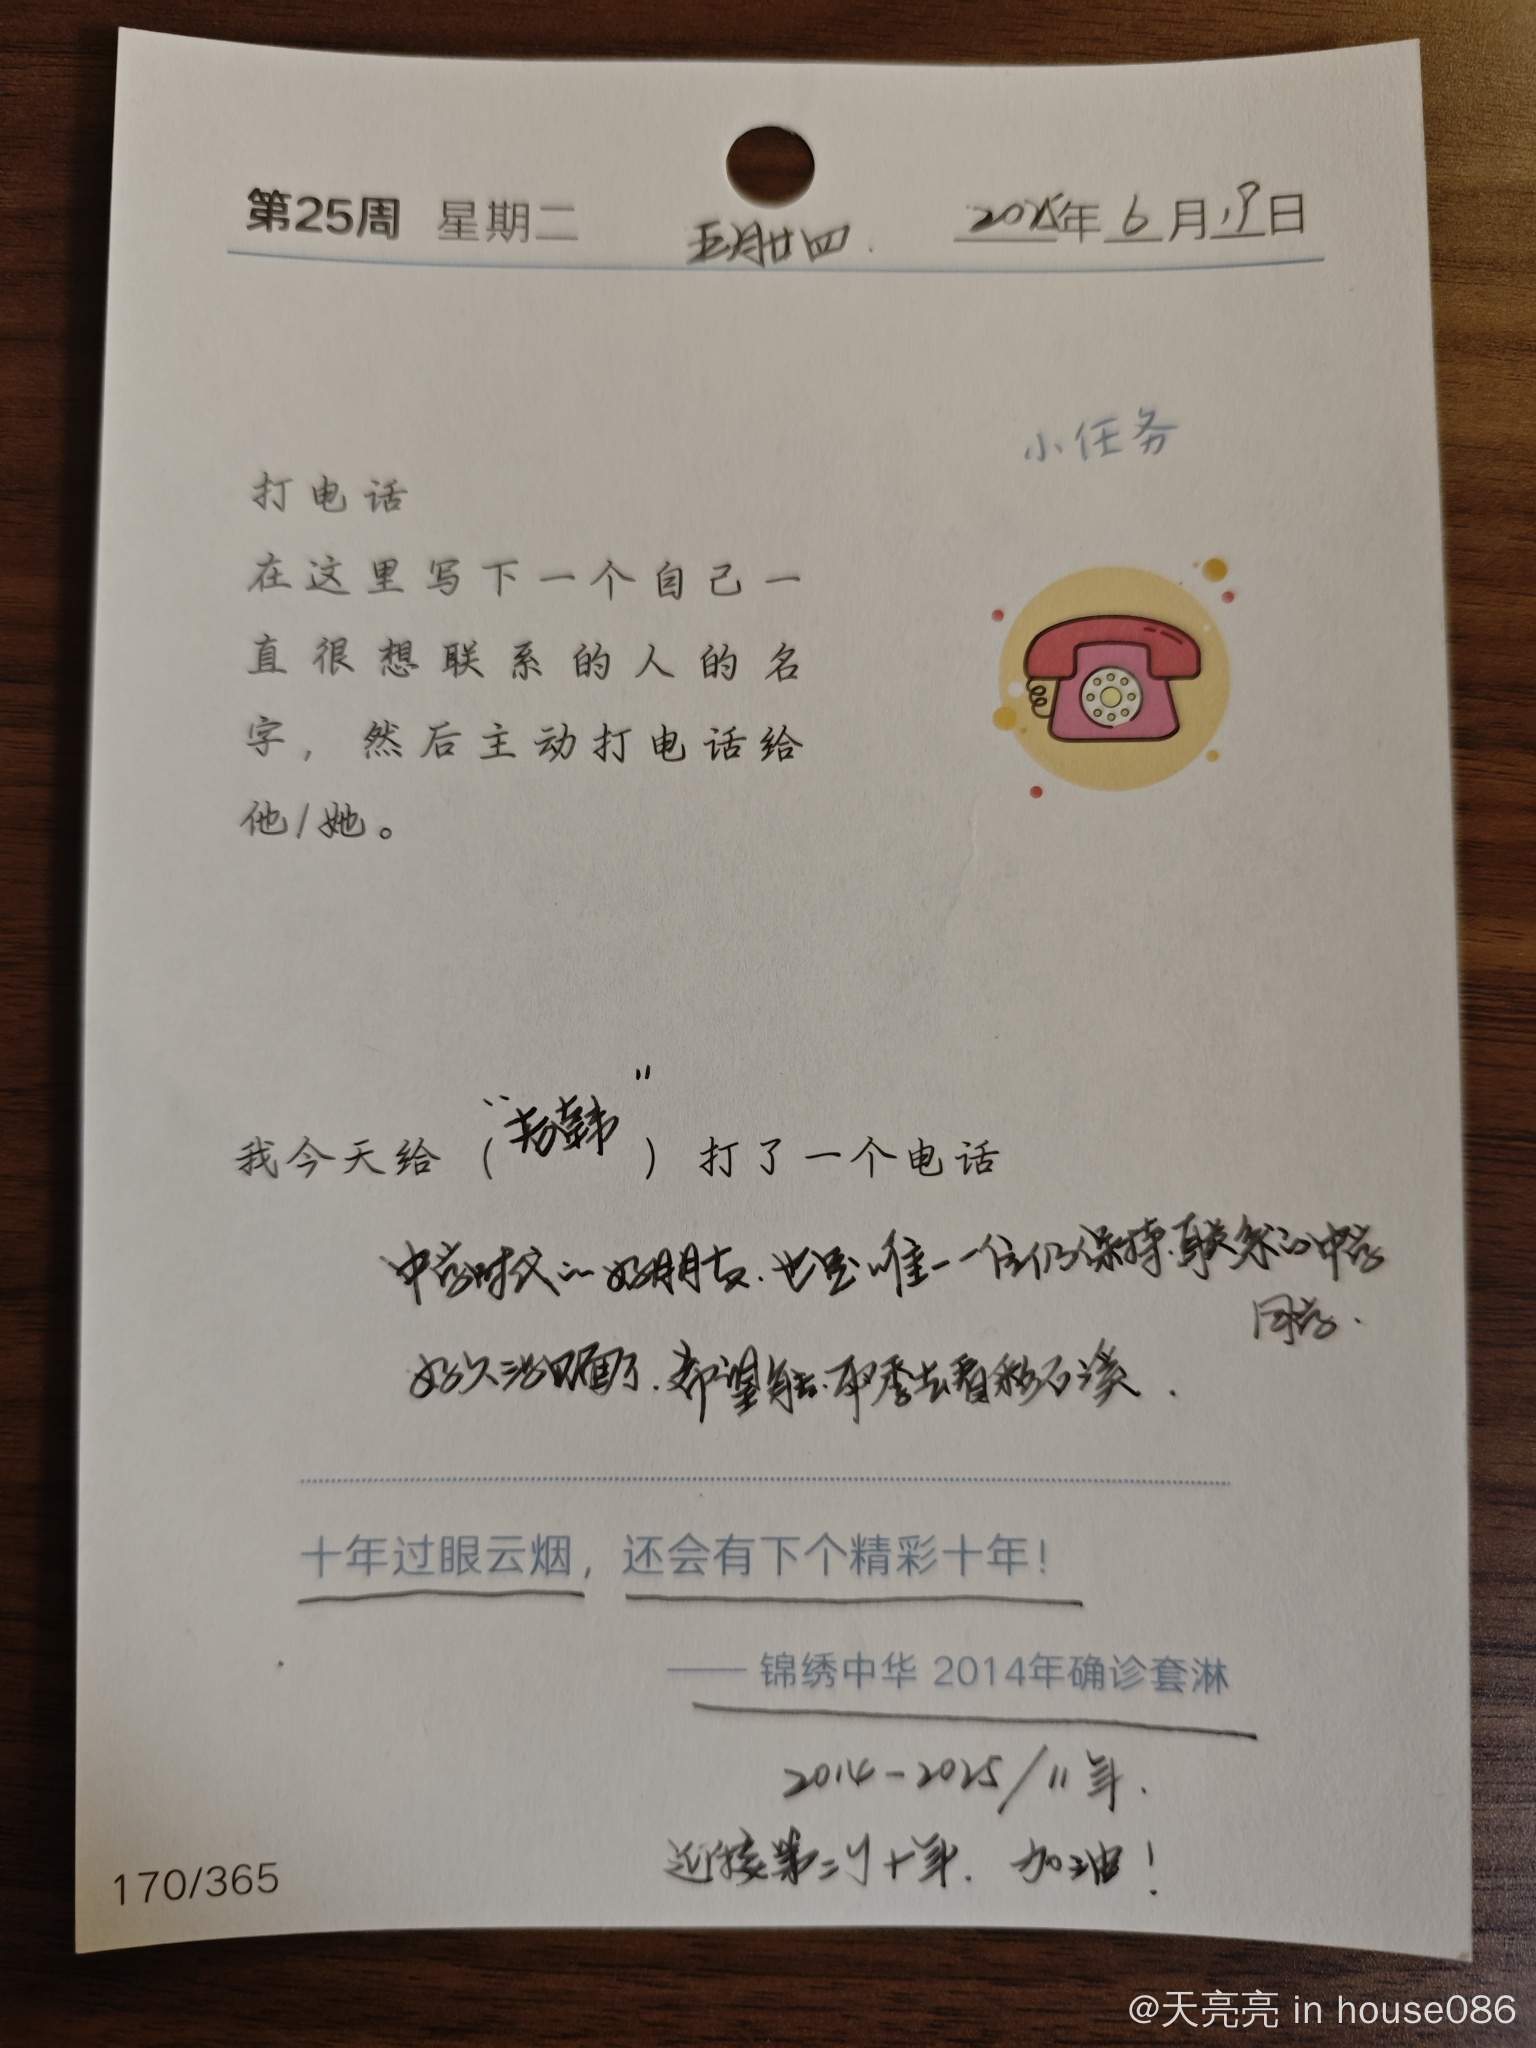 第25周 星期二 五月廿四. 2025年6月19日
小任务
打电话
在这里写下一个自己一
直很想联系的人的名
字，然后主动打电话给
他/她。
我今天给（“ ”）打了一个电话
中学时代的好朋友.也是唯一一位仍保持联系的中学
同学.
好久没见面了.希望能 季去看
十年过眼云烟，还会有下个精彩十年！
—— 锦绣中华 2014年确诊套淋
2014-2025/11年.
迎接第二个十年. 加油！
170/365
@天亮亮 in house086